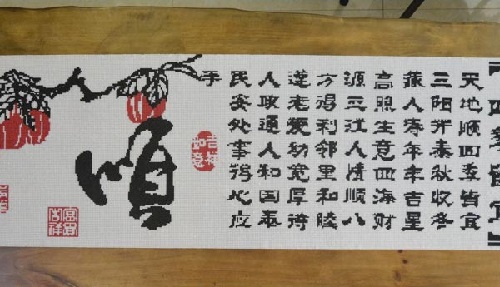 天地顺四季皆宜
三阳开泰秋收冬
藏人寿年丰吉星
高照生意四海财
源三江人情顺八
方得利邻里和睦
遵老爱幼宽厚待
人政通人和国泰
民安处事得心应
手
顺